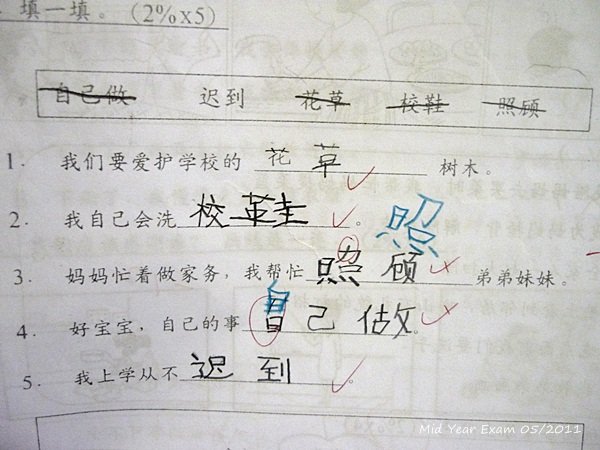 填一填。(2%x5)
自己做 迟到 花草 校鞋 照顾
1. 我们要爱护学校的 花草 树木。
2. 我自己会洗 校鞋。
照
3. 妈妈忙着做家务，我帮忙 照顾 弟弟妹妹。
4. 好宝宝，自己的事 自己做。
5. 我上学从不 迟到。
Mid Year Exam 05/2011